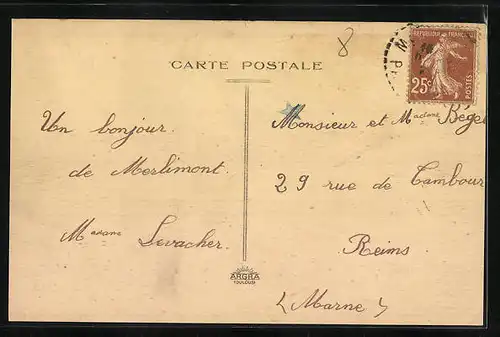 8
CARTE POSTALE
REPUBLIQUE FRANÇAISE
25c
POSTES
Un bonjour
de Merlimont.
Madame Levacher.
Monsieur et Madame
29 rue de Tambour
Reims
(Marne)
ARGRA
TOULOUSE